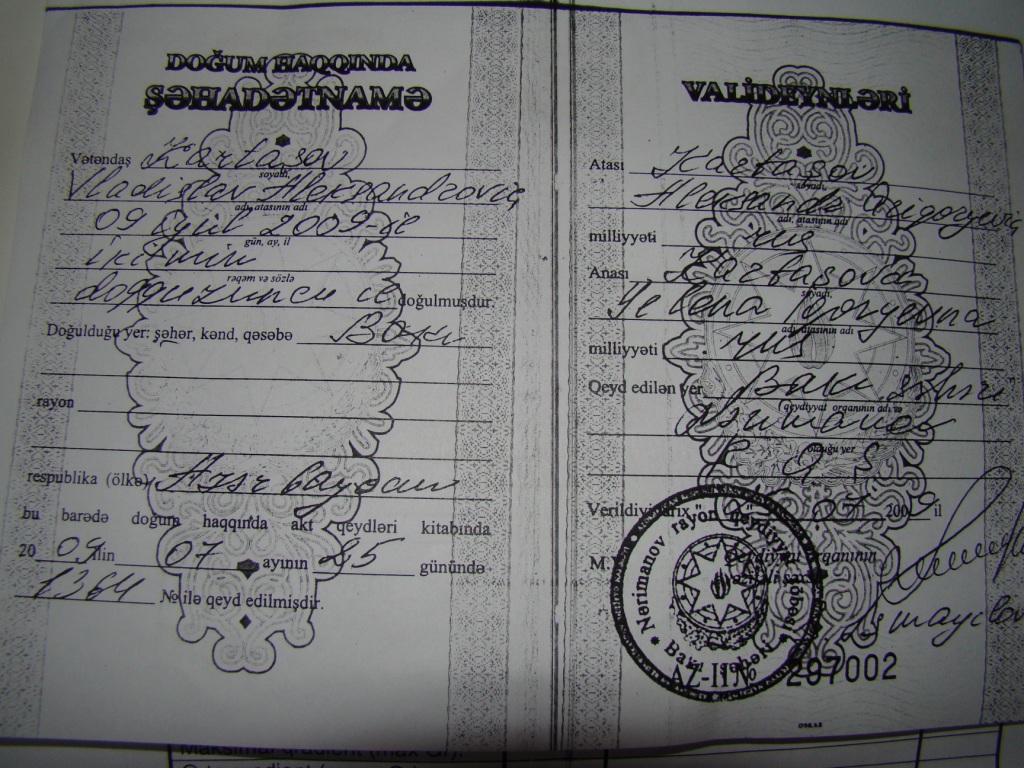 DOĞUM HAQQINDA
ŞƏHADƏTNAMƏ
Vətəndaş Kartaşov
soyadı,
Vladislav Aleksandroviç
adı, atasının adı
09 Eylül 2009-il
gün, ay, il
iki min
rəqəm və sözlə
doqquzuncu il doğulmuşdur.
Doğulduğu yer: şəhər, kənd, qəsəbə Bakı
rayon
respublika (ölkə) Azərbaycan
bu barədə doğum haqqında akt qeydləri kitabında
20 09 ilin 07 ayının günündə
1364 № ilə qeyd edilmişdir.
VALİDEYNLƏRİ
Atası Kartaşov
soyadı,
Aleksandr Qriqoryeviç
adı, atasının adı
milliyyəti rus
Anası Kartaşova
soyadı,
Yelena İqoryevna
adı, atasının adı
milliyyəti rus
Qeyd edilən yer Bakı şəhəri
(qeydiyyat orqanının adı və
Nərimanov
olduğu yer
Verildiyi tarix 200 il
M.Y. Qeydiyyat orqanının
Nərimanov rayon qeydiyyat şöbəsi
Bakı şəhəri
AZ-II № 297002
Maksimal qradient (max G):